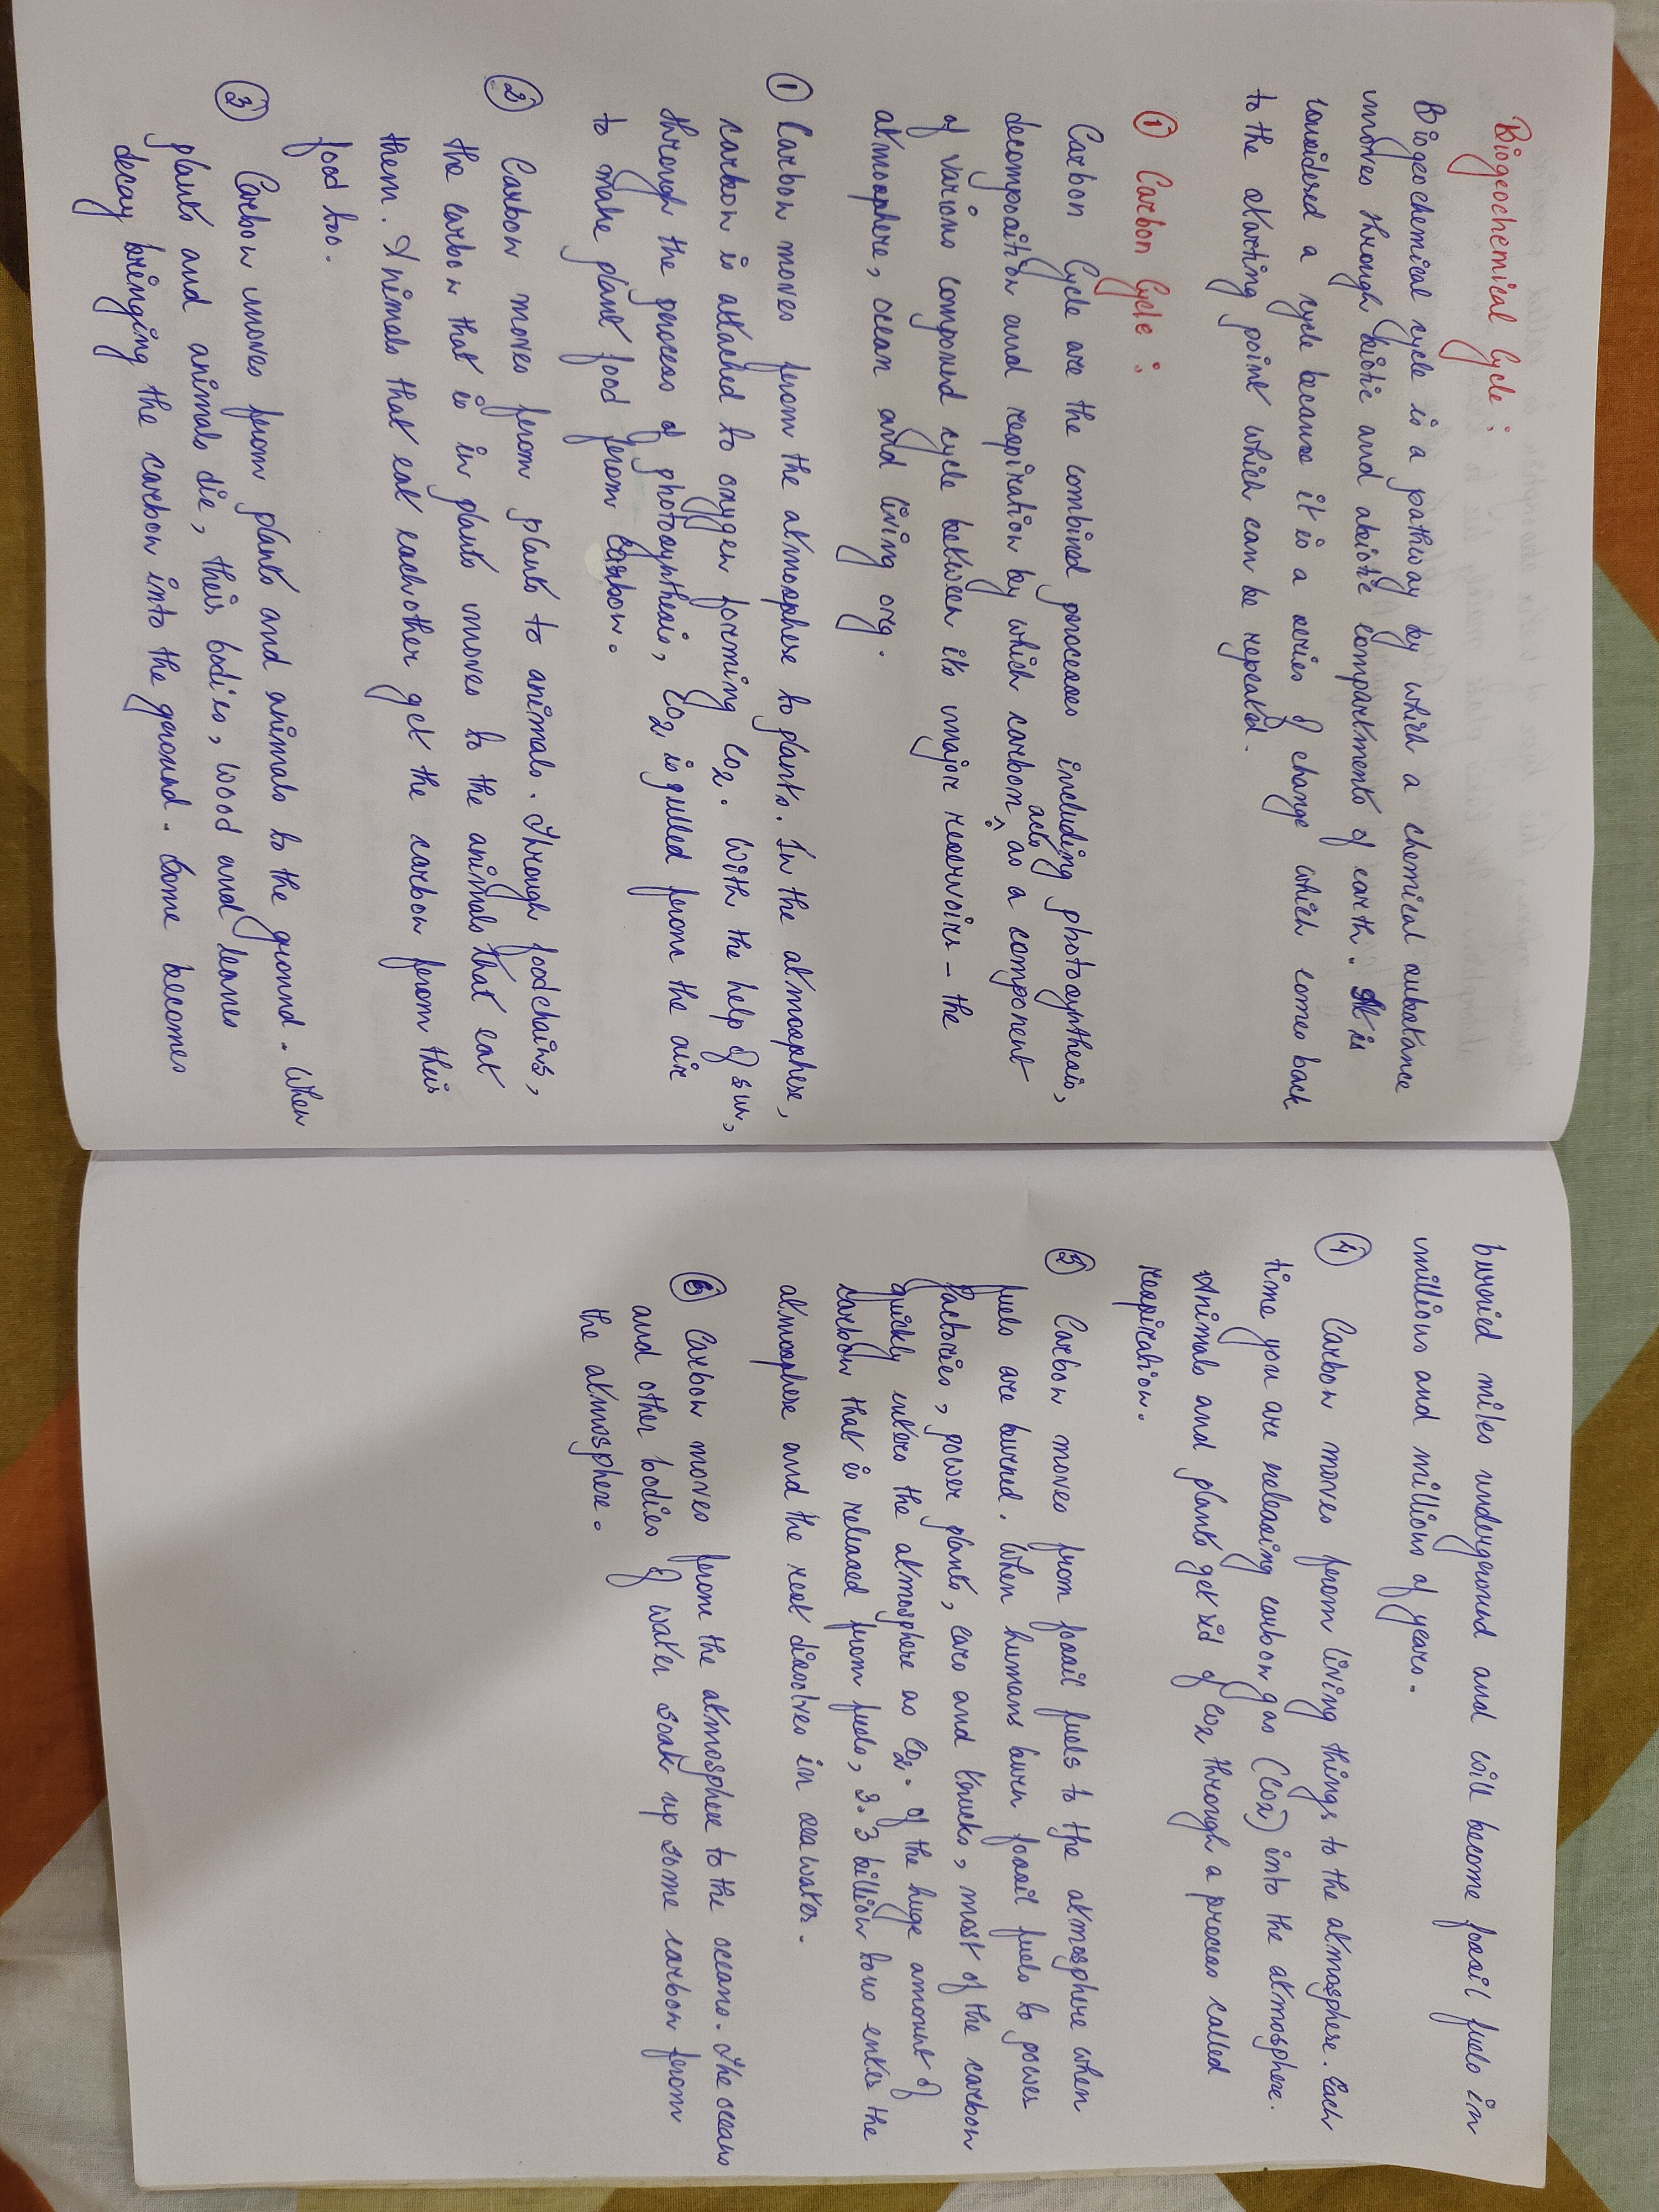 Biogeochemical Cycle :
Biogeochemical cycle is a pathway by which a chemical substance
moves through biotic and abiotic compartments of earth. It is
considered a cycle because it is a series of change which comes back
to the starting point which can be repeated.
① Carbon Cycle :
Carbon Cycle are the combined processes including photosynthesis,
decomposition and respiration by which carbon acts as a component
of various compound cycle between its major reservoirs - the
atmosphere, ocean and living org.
① Carbon moves from the atmosphere to plants. In the atmosphere,
carbon is attached to oxygen forming CO2. With the help of sun,
through the process of photosynthesis, CO2 is pulled from the air
to make plant food from carbon.
② Carbon moves from plants to animals. Through foodchains,
the carbon that is in plants moves to the animals that eat
them. Animals that eat eachother get the carbon from their
food too.
③ Carbon moves from plants and animals to the ground. When
plants and animals die, their bodies, wood and leaves
decay bringing the carbon into the ground. Some becomes
burried miles underground and will become fossil fuels in
millions and millions of years.
④ Carbon moves from living things to the atmosphere. Each
time you are releasing carbon gas (CO2) into the atmosphere.
Animals and plants get rid of CO2 through a process called
respiration.
⑤ Carbon moves from fossil fuels to the atmosphere when
fuels are burned. When humans burn fossil fuels to power
factories, power plants, cars and trucks, most of the carbon
quickly enters the atmosphere as CO2. Of the huge amount of
carbon that is released from fuels, 3.3 billion tons enter the
atmosphere and the rest dissolves in sea water.
⑥ Carbon moves from the atmosphere to the oceans. The oceans
and other bodies of water soak up some carbon from
the atmosphere.